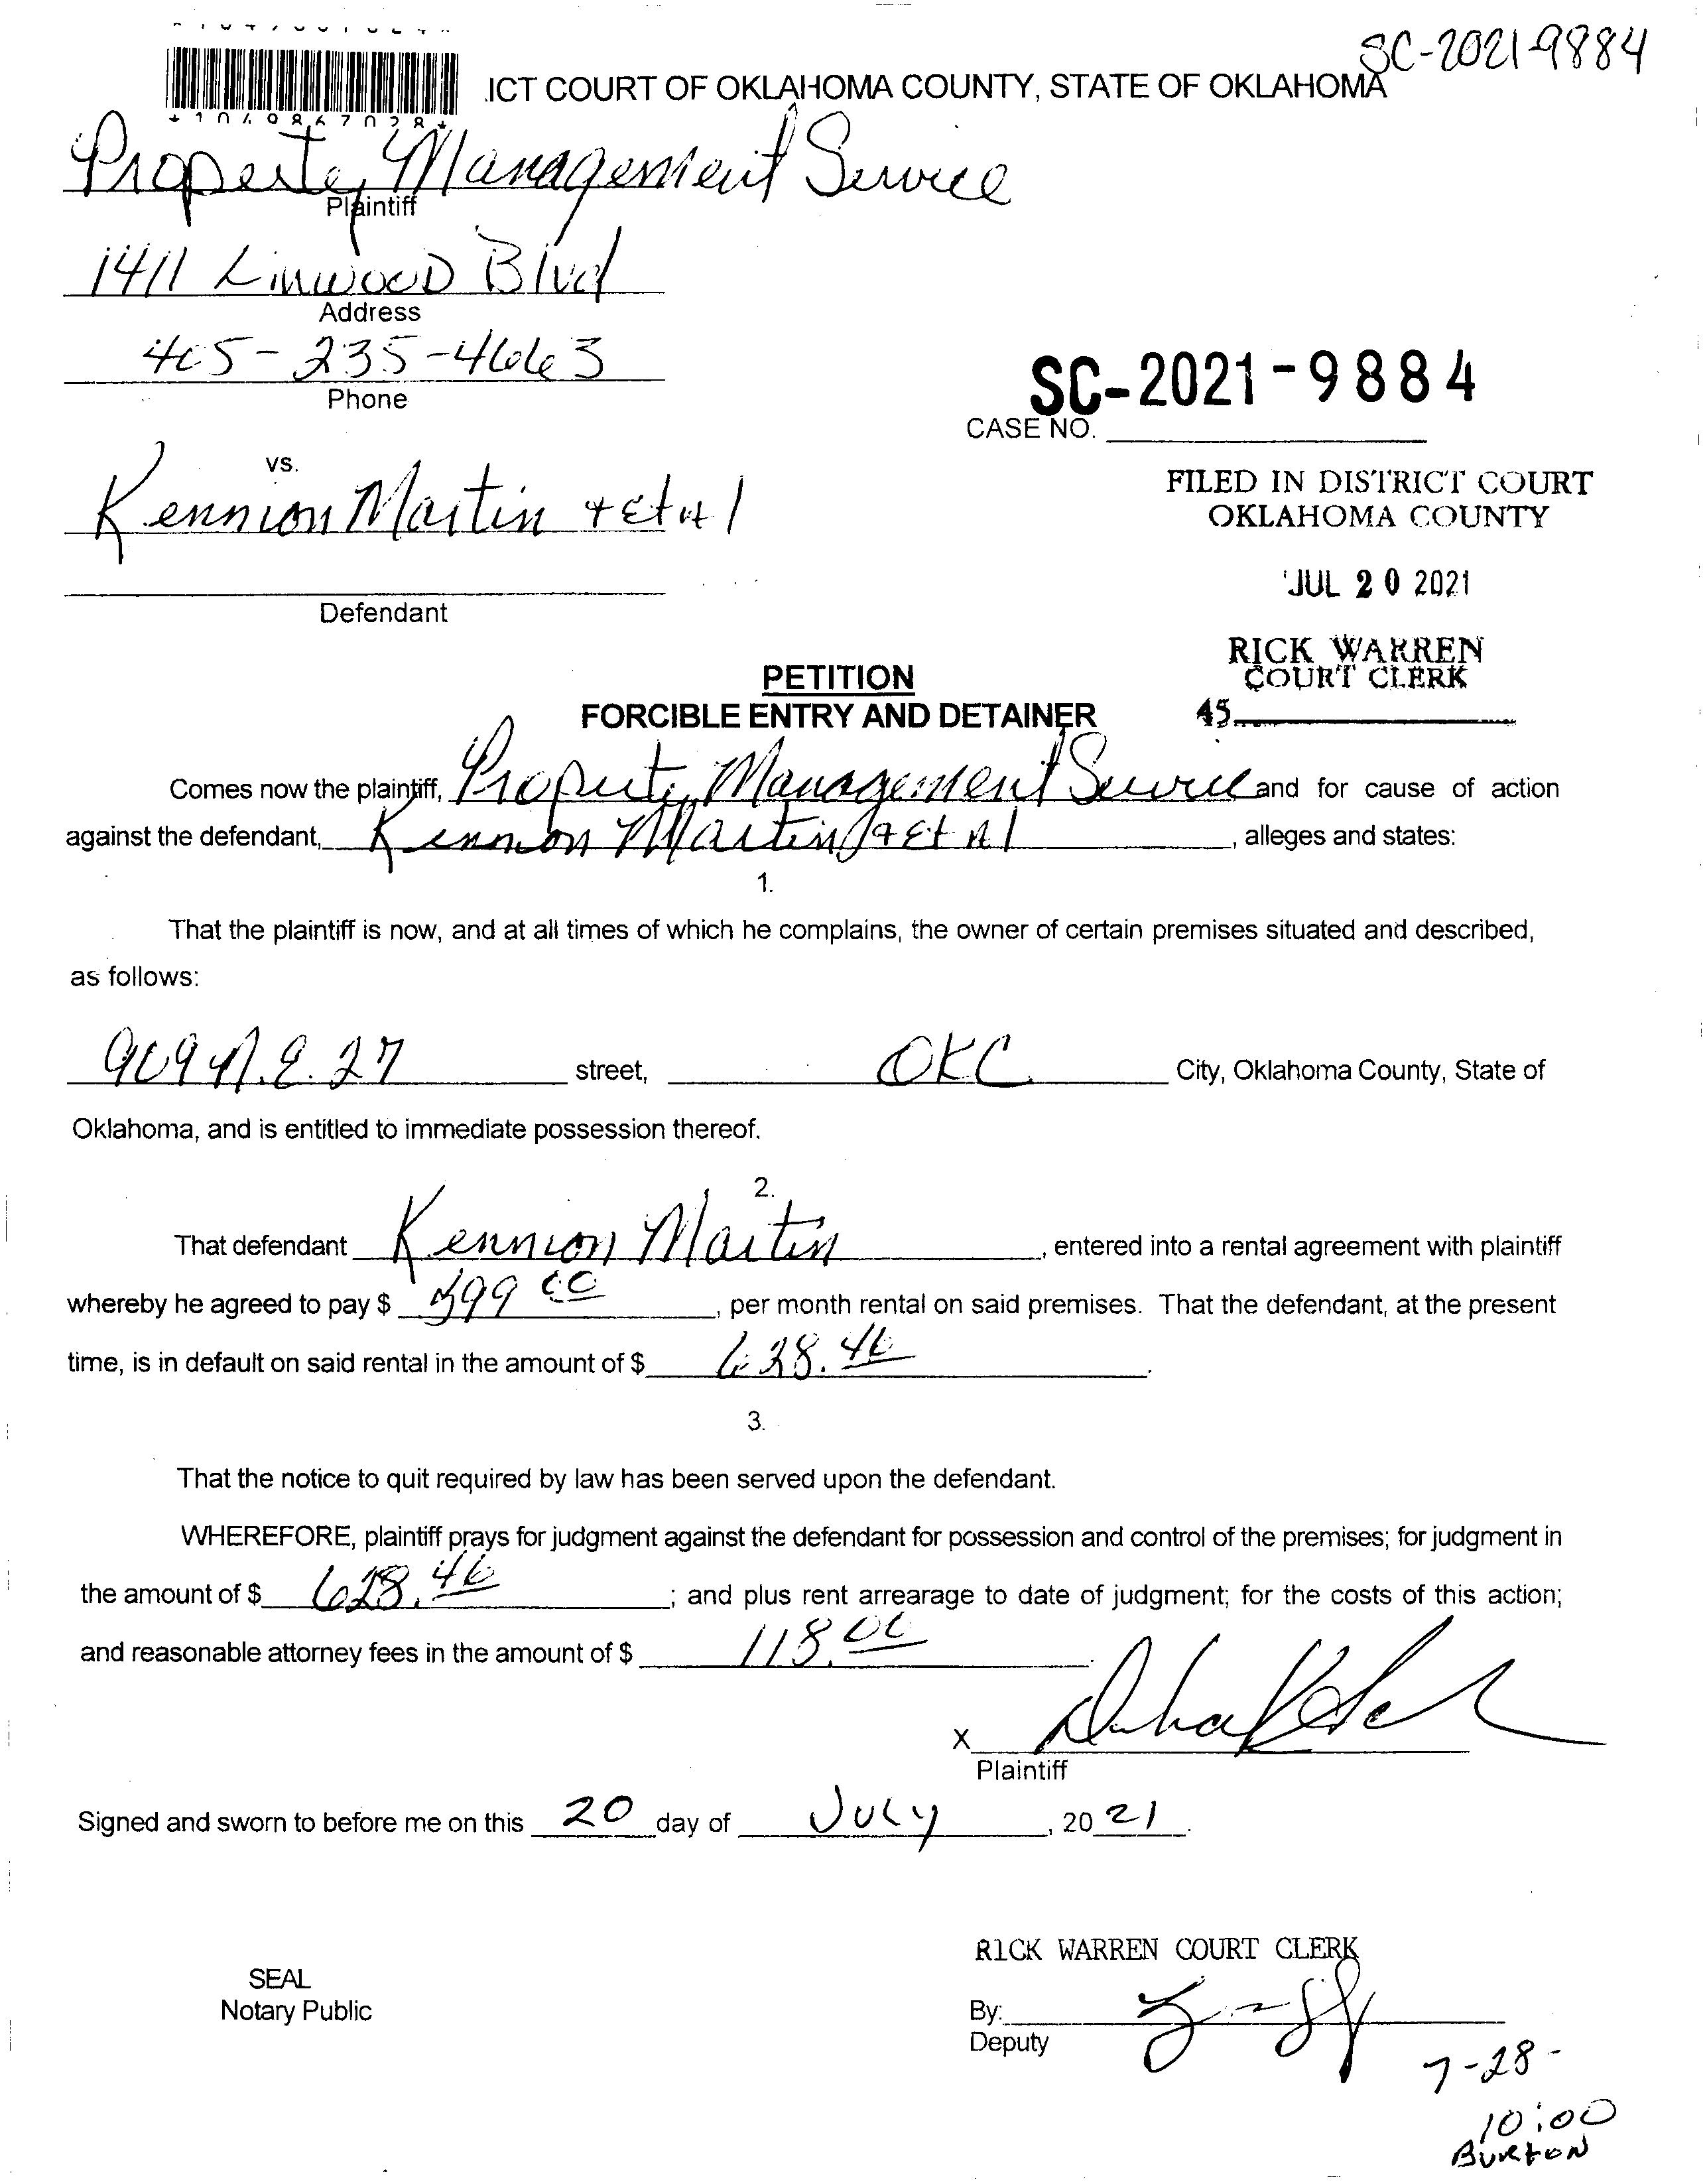 SC-2021-9884
ICT COURT OF OKLAHOMA COUNTY, STATE OF OKLAHOMA
*1049867028*
Property Management Service
Plaintiff
1411 Linwood Blvd
Address
405-235-4663
Phone
SC-2021-9884
CASE NO.
vs.
Kennion Martin + Et Al
FILED IN DISTRICT COURT
OKLAHOMA COUNTY
JUL 20 2021
Defendant
RICK WARREN
COURT CLERK
45
PETITION
FORCIBLE ENTRY AND DETAINER
Comes now the plaintiff, Property Management Service and for cause of action
against the defendant, Kennion Martin + Et Al, alleges and states:
1.
That the plaintiff is now, and at all times of which he complains, the owner of certain premises situated and described,
as follows:
909 N.E. 27 street, OKC City, Oklahoma County, State of
Oklahoma, and is entitled to immediate possession thereof.
2.
That defendant Kennion Martin, entered into a rental agreement with plaintiff
whereby he agreed to pay $ 599 00, per month rental on said premises. That the defendant, at the present
time, is in default on said rental in the amount of $ 628.46.
3.
That the notice to quit required by law has been served upon the defendant.
WHEREFORE, plaintiff prays for judgment against the defendant for possession and control of the premises; for judgment in
the amount of $ 628.46; and plus rent arrearage to date of judgment; for the costs of this action;
and reasonable attorney fees in the amount of $ 118.00.
X
Plaintiff
Signed and sworn to before me on this 20 day of July, 20 21.
RICK WARREN COURT CLERK
SEAL
Notary Public
By:
Deputy
7-28-
10:00
Burton